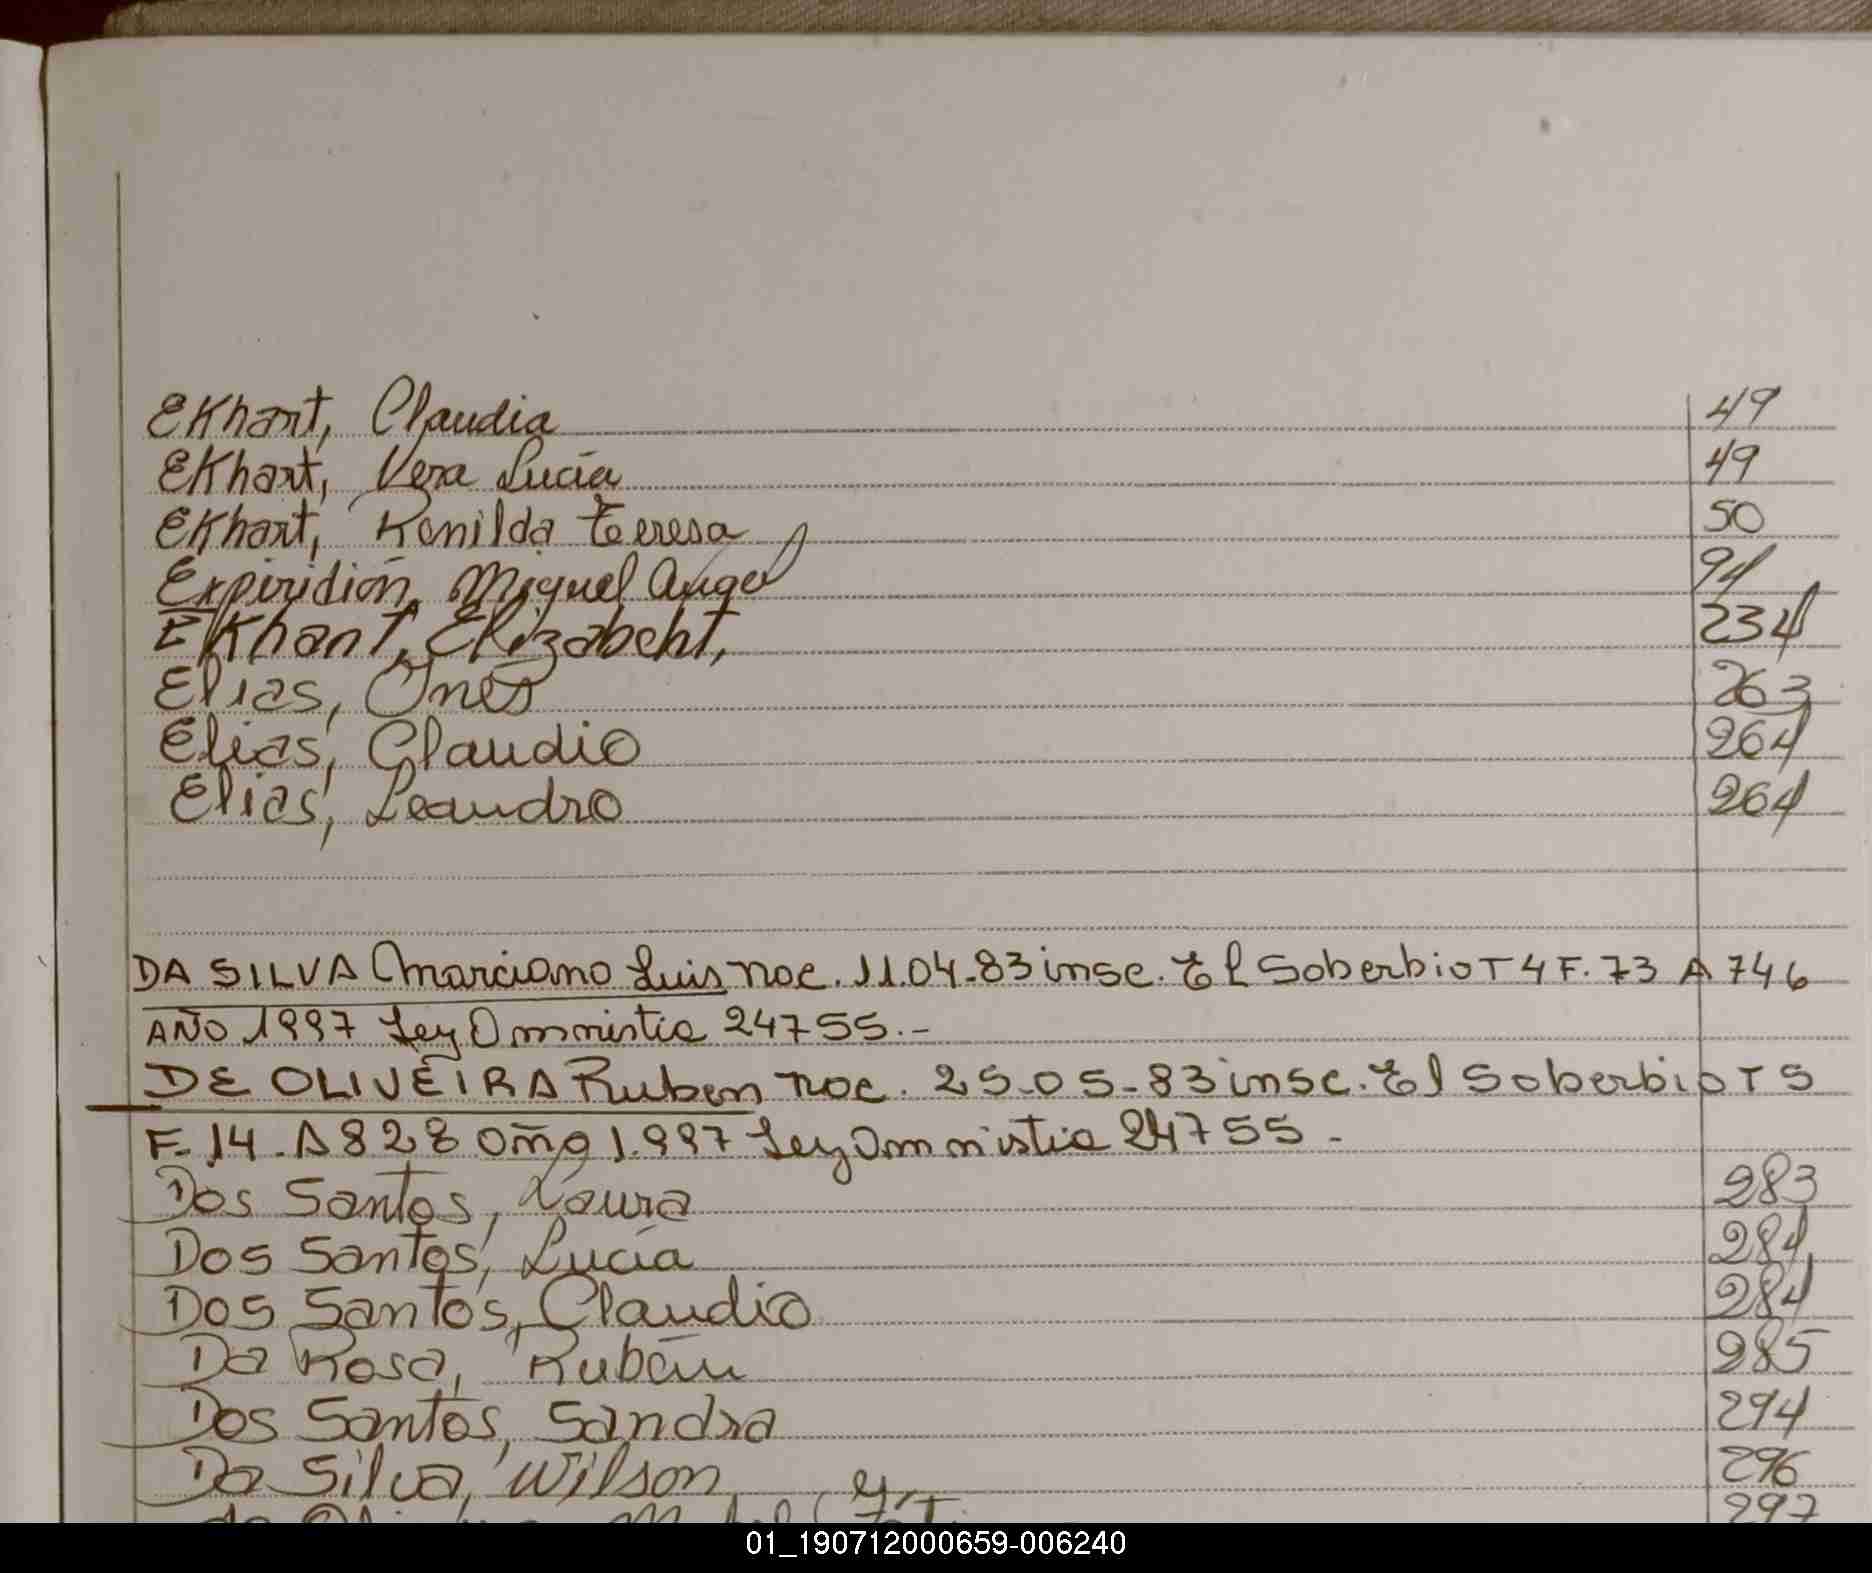 Ekhart, Claudia 49
Ekhart, Vera Lucía 49
Ekhart, Renilda Teresa 50
Expiridión, Miguel Angel 94
Ekhart, Elizabeht, 234
Elias, Ines 263
Elias, Claudio 264
Elias, Leandro 264
DA SILVA Marciano Luis nac. 11.04-83 insc. El Soberbio T4 F.73 A 746
AÑO 1997 Ley Ommistia 24755.-
DE OLIVEIRA Ruben nac. 25-05-83 insc. El Soberbio T5
F.14-A828 año 1.997 Ley Ommistia 24755-
Dos Santos, Laura 283
Dos Santos, Lucía 284
Dos Santos, Claudio 284
Da Rosa, Rubén 285
Dos Santos, Sandra 294
Da Silva, Wilson 296
297
01_190712000659-006240